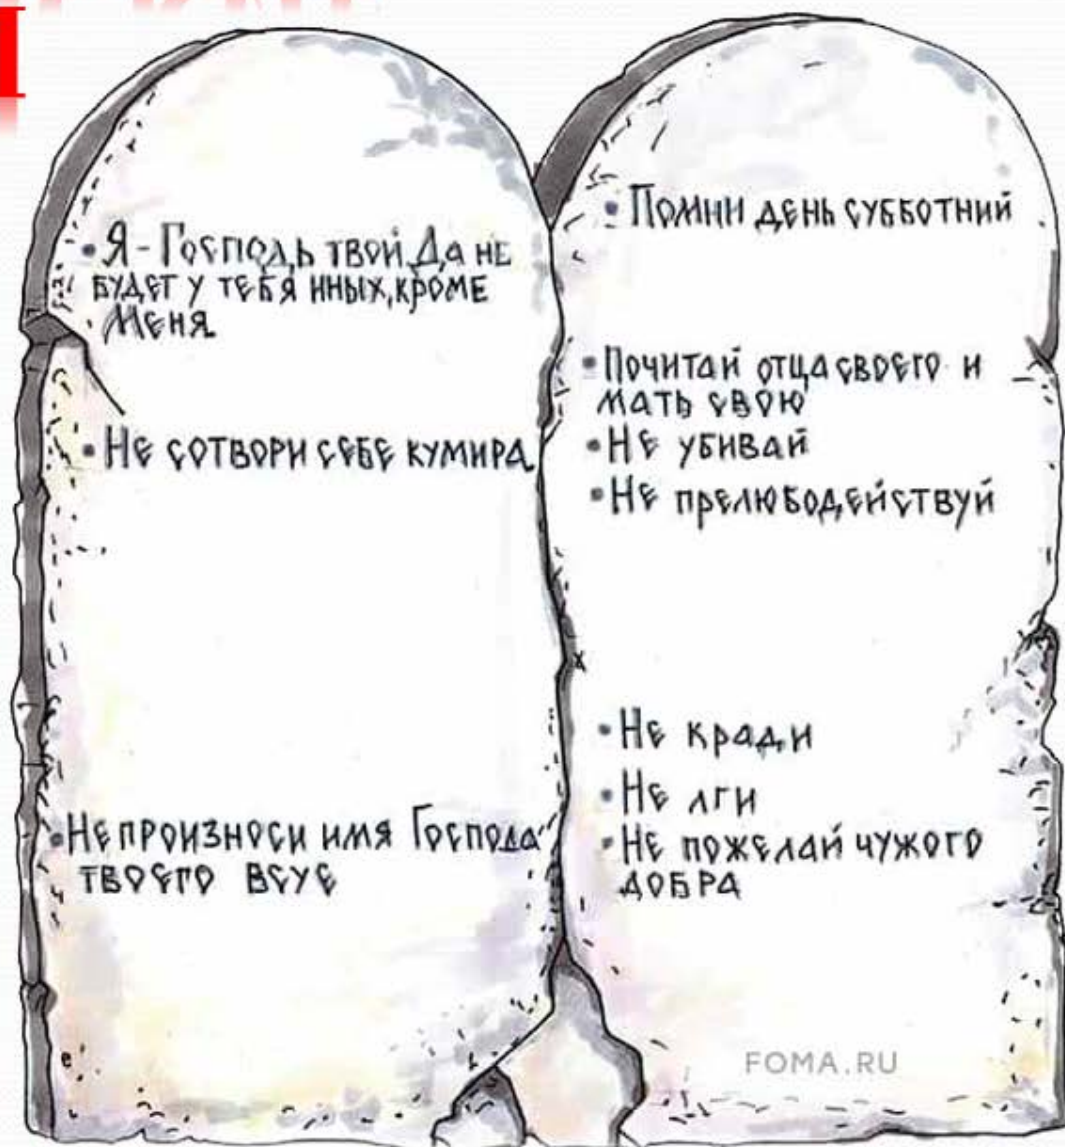 • Я - Господь твой Да не
будет у тебя иных, кроме
Меня.
• Не сотвори себе кумира.
• Не произноси имя Господа
твоего всуе
• Помни день субботний
• Почитай отца своего и
мать свою
• Не убивай
• Не прелюбодействуй
• Не кради
• Не лги
• Не пожелай чужого
добра
FOMA.RU